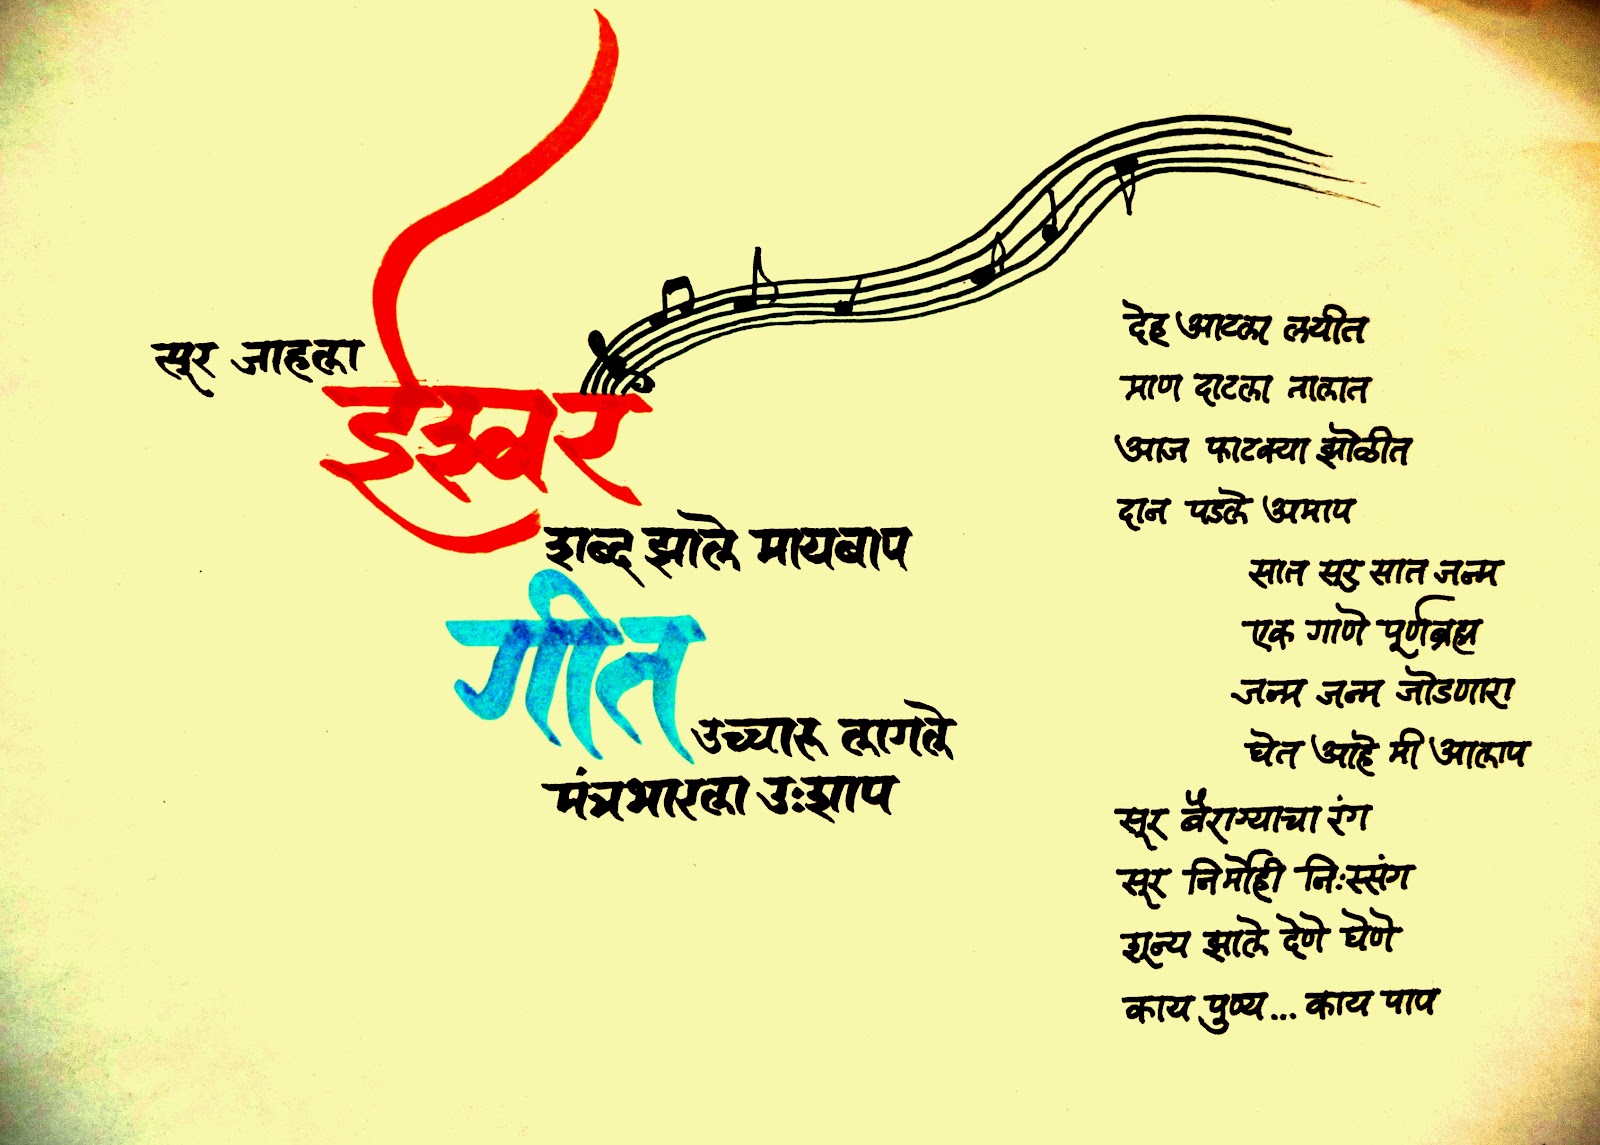 सूर जाहला
ईश्वर
शब्द झाले मायबाप
गीत
उच्चारू लागले
मंत्रभारला उ:शाप
देह आटला लयीत
प्राण दाटला तालात
आज फाटक्या झोळीत
दान पडले अमाप
सात सूर सात जन्म
एक गाणे पूर्णब्रह्म
जन्म जन्म जोडणारा
घेत आहे मी आलाप
सूर वैराग्याचा रंग
सूर निर्मोही नि:स्संग
शून्य झाले देणे घेणे
काय पुण्य... काय पाप